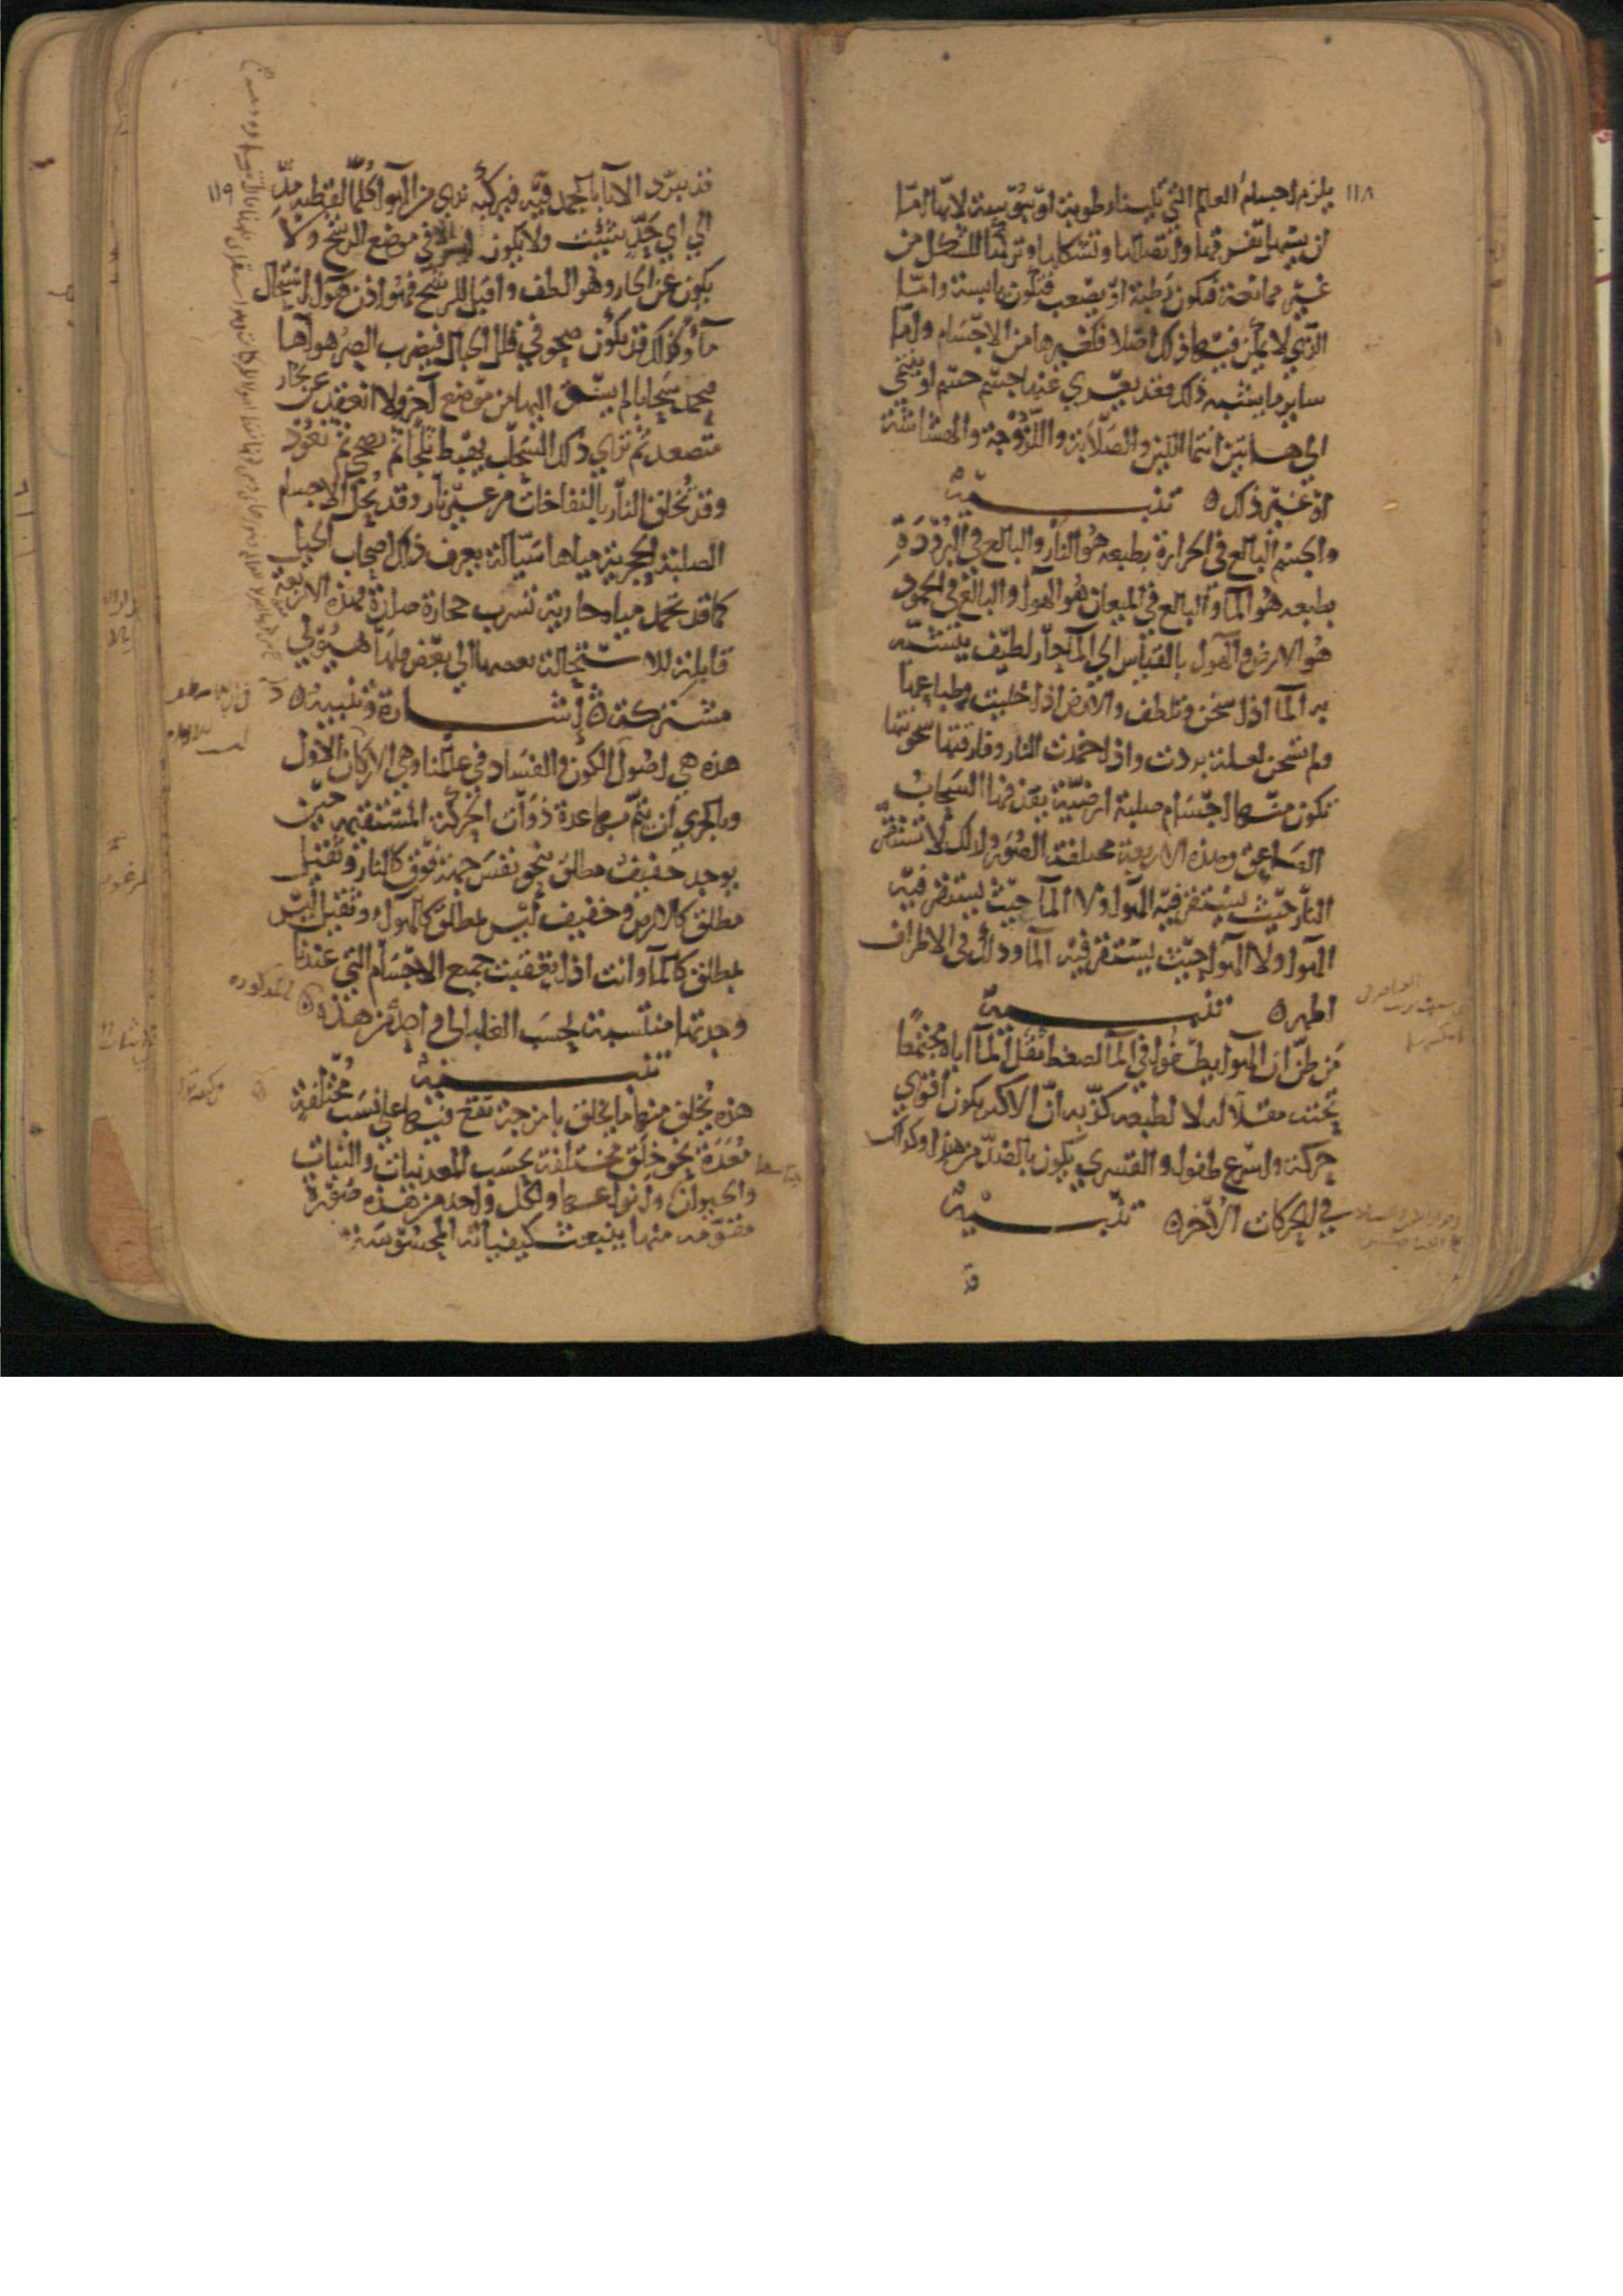 ١١٨
يلزم اجسام العالم التي تلينا رطوبة او يبوسة لانها اما
ان يسهل تفرقها واتصالها وتشكلها وتركها للشكل من
غير ممانعة فتكون رطبة او يصعب فتكون يابسة واما
الذي لا يمكن فيها ذلك اصلا فكغيرها من الاجسام واما
ساير ما يشبه ذلك فقد يعري عنه جسم جسم او ينتمي
الى هاتين انتما اللين والصلابة واللزوجة والهشاشة
او غير ذلك ٥ تنبيه
والجسم البالغ في الحرارة بطبعه هو النار والبالغ في البرودة
بطبعه هو الما والبالغ في الميعان هو الهوا والبالغ في الجمود
هو الارض والهوا بالقياس الى الما حار لطيف يتشبه
به الما اذا سخن وتلطف والارض اذا خليت وطباعها
ولم تسخن لعلة بردت واذا خمدت النار وفارقتها سخونتها
تكون منها اجسام صلبة ارضية يقذفها السحاب
الصاعق وهذه الاربعة مختلفة الصور ولذلك لا تستقر
النار حيث يستقر فيه الهوا ولا الما حيث يستقر فيه
الهوا ولا الهوا حيث يستقر فيه الما وذلك في الاطراف
اظهر ٥ تنبيه
من ظن ان الهوا يطفوا في الما لضغط ثقل الما اياه مجتمعا
تحته مقلا له لا لطبعه كذبه ان الاكبر يكون اقوى
حركة واسرع طفوا والقسري يكون بالضد من هذا وكذلك
في الحركات الاخر ٥ تنبيه
قد
١١٩
قد يبرد الانا بالجمد فيه فيركبه ندى من الهوا كلما لقطته مد
الى اي حد شئت ولا يكون ليس الا في موضع الرشح ولا
يكون عن الحار وهو الطف واقبل للرشح فهو اذن هوا استحال
ما وكذلك قد يكون صحو في قلل الجبال فيضرب الصر هواها
فيجمد سحابا لم ينسق اليها من موضع اخر ولا انعقد عن بخار
متصعد ثم ترى ذلك السحاب يهبط ثلجا ثم يصحى ثم تعود
وقد تخلق النار بالنفاخات من غير نار وقد تحل الاجسام
الصلبة الحجرية مياها سيالة يعرف ذلك اصحاب الحيل
كما قد تجمد مياه جارية تشرب حجارة صلدة فهذه الاربعة
قابلة للاستحالة بعضها الى بعض فلها هيولى
مشتركة ٥ اشارة وتنبيه ٥
هذه هي اصول الكون والفساد في عالمنا وهي الاركان الاول
وبالحري ان يتم بها عدة ذوات الحركة المستقيمة حين
يوجد خفيف مطلق ينحو نفس جهة فوق كالنار وثقيل
مطلق كالارض وخفيف ليس بمطلق كالهوا وثقيل ليس
بمطلق كالما وانت اذا تعقبت جميع الاجسام التي عندنا
وجدتها منتسبة بحسب الغلبة الى واحد من هذه ٥
تنبيه
هذه يخلق منها ما يخلق بامزجة تقع فيها على نسب مختلفة
معدة نحو خلق مختلفة بحسب المعدنيات والنبات
والحيوان وانواعها ولكل واحد من هذه صورة
مقومة منها ينبعث كيفياته المحسوسة